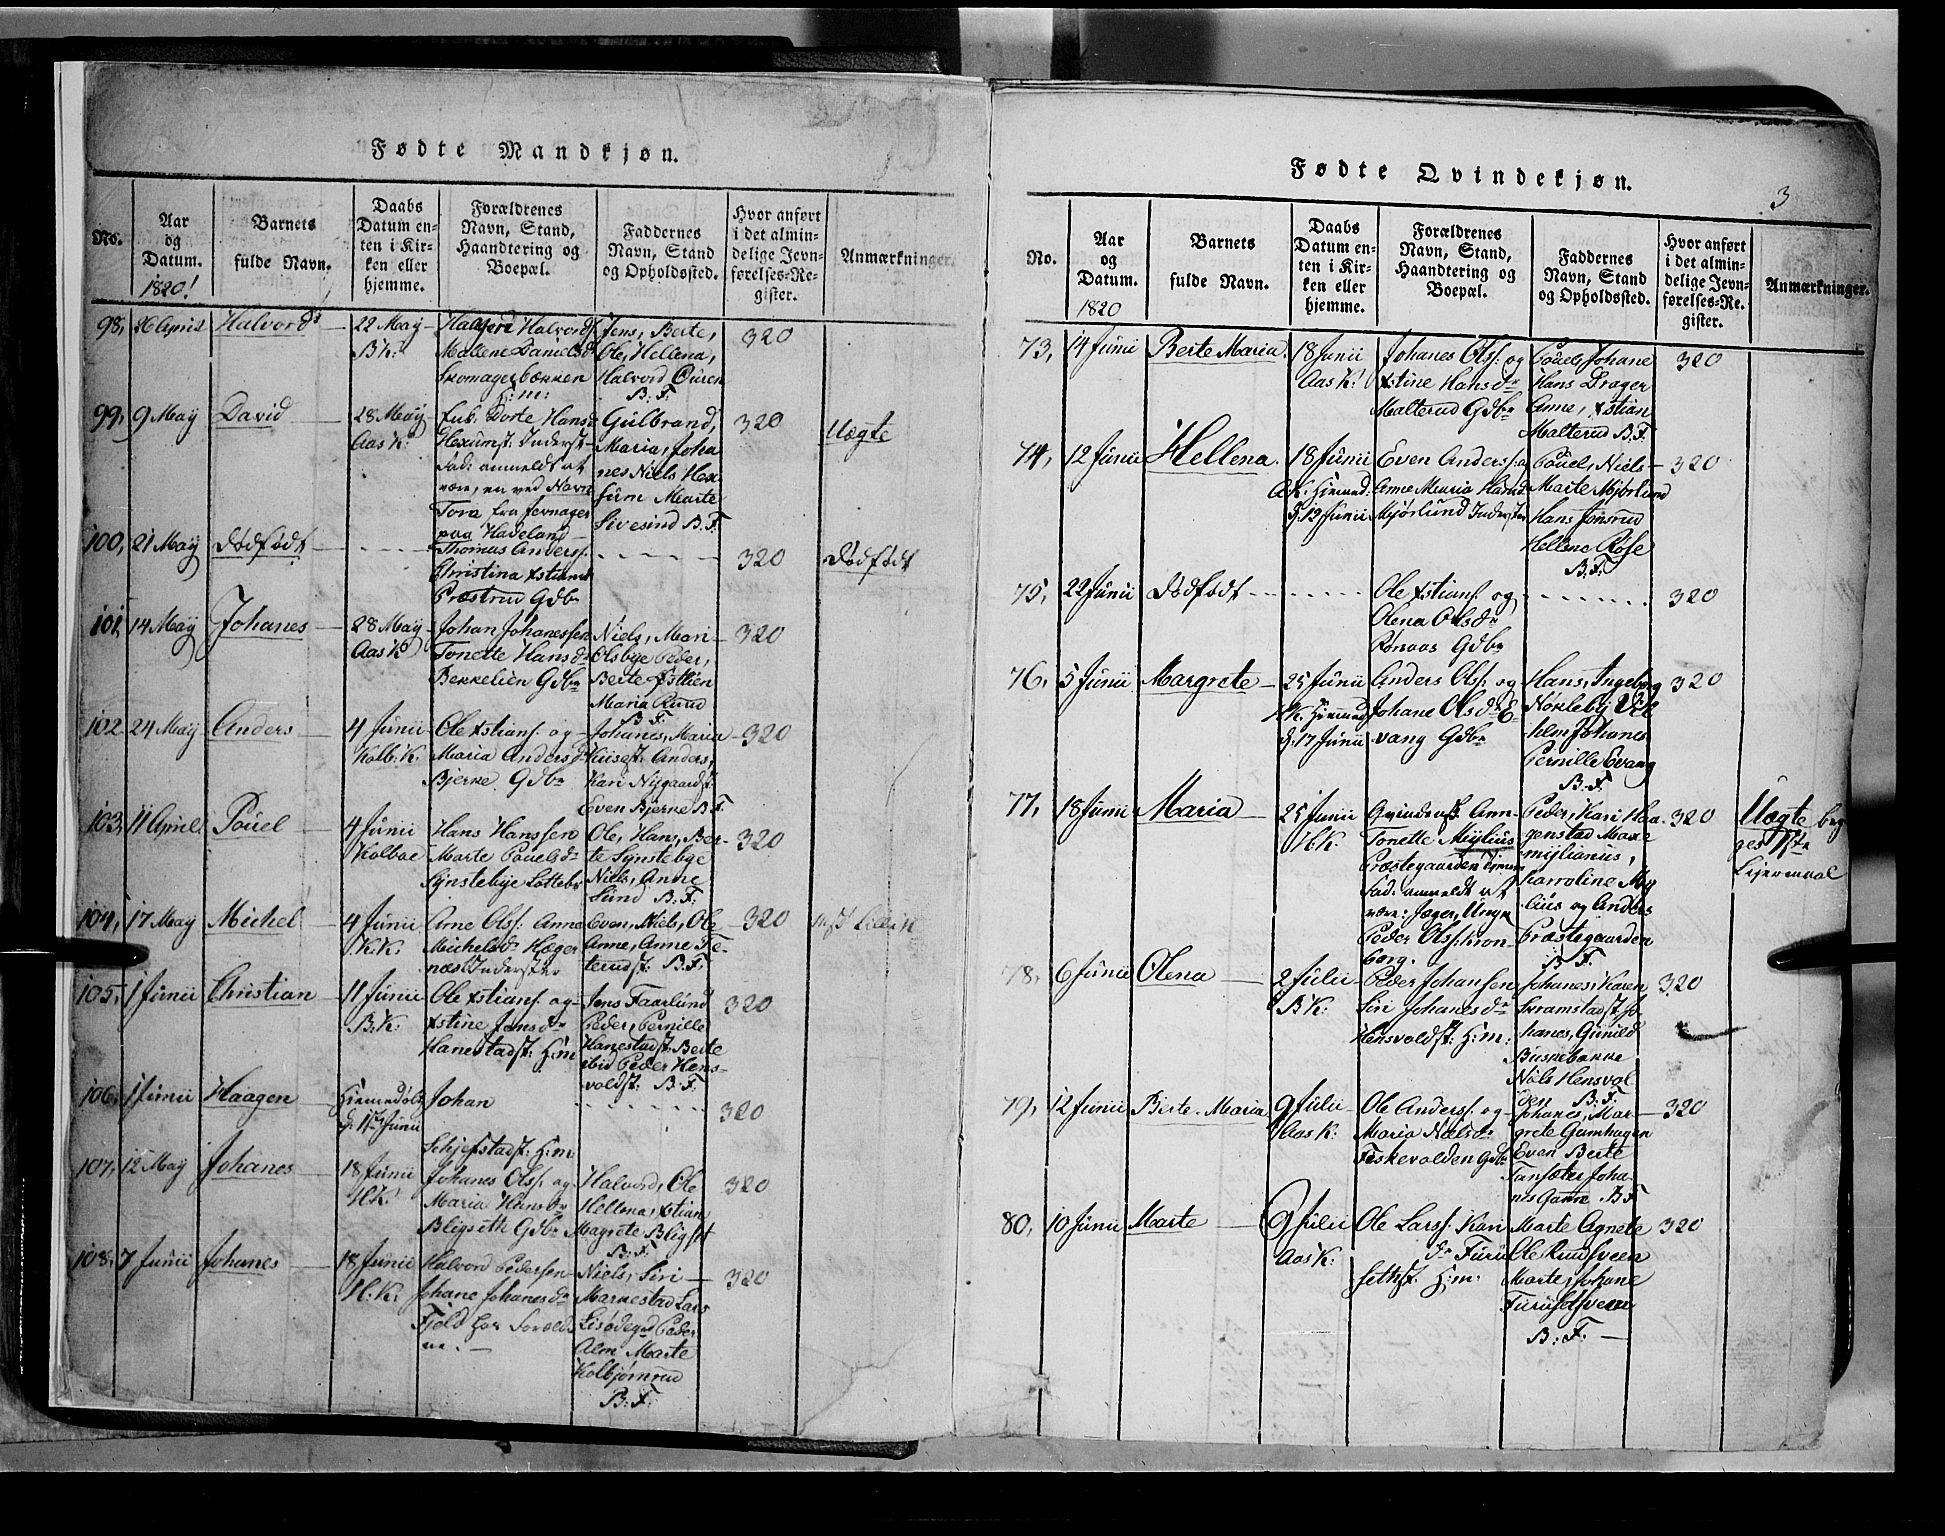 Fødte Mandkjøn.
No.
Aar
og
Datum.
1820!
Barnets
fulde Navn.
Daabs
Datum en-
ten i Kir-
ken eller
hjemme.
Forældrenes
Navn, Stand,
Haandtering og
Boepæl.
Faddernes
Navn, Stand
og Opholdssted.
Hvor anført
i det almin-
delige Jevn-
førelses-Re-
gister.
Anmærkninger.
98, 26 April Halvord
22 May
B K:
Halvords
Mallene Daniels
Skomagerbækken
H:m:
Jens, Berte,
Ole, Hellena,
Halvord Øuren
B. F.
320
99, 9 May David
28 May
Aas K.
Fub. Dorte Hansd
Hexumst. Inderst
Fad: anmeldt at
være, en ved Navn
Tora fra Jevnager
paa Hadeland
Gulbrand,
Maria, Joha
nes Niels Hex
um Marte
Sivesind B. F.
320
Uægte
100, 21 May Dødfødt
Thomas Anders:
Christina xstians
Præstrud Gdbr
320
Dødfødt
101, 14 May Johanes
28 May
Aas K
Johan Johanessen
Tonette Hansdr
Bekkelien Gdbr
Niels, Mari
Olsbye Peder,
Berte Østlien
Maria Ruud
B. F.
320
102 24 May Anders
4 Junii
Kolb: K.
Ole xstians: og
Maria Andersd
Bjerke Gdbr
Johanes, Maria
Huusest. Anders,
Kari Nygaardst.
Even Bjerke B. F.
320
103, 11 April Pouel
4 Junii
Kolboe
Hans Hanssen
Marte Pouelsdr
Synstebye Lottebr
Ole, Hans, Ber-
te Synstebye
Niels, Anne
Sund B. F.
320
104, 17 May Michel
4 Junii
K. K.
Arne Ols: Anne
Michelsd Hæger
næs Inderster
Even, Niels, Ole
Anne, Anne Te-
terudst: B. F.
320
105, 1 Junii Christian
11 Junii
B. K:
Ole xstians: og
xstine Jensdr
Hanestadst: H:m
Jens Faarlund
Peder, Pernille
Hanestadst: Berte
ibid Peder Hens-
voldst: B. F.
320
106, 1 Junii Haagen
Hiemmedøbt
d: 15 Junii
Johan
Schjefstadst: H:m
320
107, 12 May Johanes
18 Junii
H K.
Johanes Ols: og
Maria Hansdr
Bligseth Gdbr
Halvord, Ole
Hellena, xstian
Magrete Bligst
B. F.
320
108, 7 Junii Johanes
18 Junii
H. K.
Halvord Pedersen
Johane Johanesdr
Fjeld
Niels, Siri
Markestad Lars
Lisødegd Peder
Alm Marte
Kolbjørnrud
B: F.
320
Fødte Qvindekjøn.
3
No.
Aar
og
Datum.
1820
Barnets
fulde Navn.
Daabs
Datum en-
ten i Kir-
ken eller
hjemme.
Forældrenes
Navn, Stand,
Haandtering og
Boepæl.
Faddernes
Navn, Stand
og Opholdssted.
Hvor anført
i det almin-
delige Jevn-
førelses-Re-
gister.
Anmærkninger.
73, 14 Junii Berte Maria
18 Junii
Aas K:
Johanes Ols: og
xstine Hansdr
Malterud Gdbr
Pouel, Johane
Hans Drager
Anne, xstian
Malterud B. F.
320
74, 12 Junii Hellena
18 Junii
A K. Hiemmed:
d: 12 Junii
Even Anders: og
Anne Maria Hansd
Mjørlund Inderster
Pouel, Niels
Marte Mjørlund
Hans Jonsrud
Hellene Rose
B. F:
320
75, 22 Junii Dødfødt
Ole xstians: og
Olena Olsdr
Rønaas Gdbr
320
76, 5 Junii Margrete
25 Junii
H K. Hiemmed
d: 17 Junii
Anders Ols: og
Johane Olsdr E
vang Gdbr
Hans, Ingeborg
Nøkleby Vil
helm Johanes
Pernille Evang
B. F.
320
77, 18 Junii Maria
25 Junii
H. K.
Ann
Tonette Mijlius
Præstegaarden
Fad: anmeldt at
være: Jæger, Ungk
Peder Ols: Kron
borg.
Peder, Kari Haa
genstad Maxe
mijlianus,
Karroline My
lius og Anders
Præstegaarden
B. F.
320
Uægte beg
ges 1ste
Lejermaal
78, 6 Junii Olena
2 Julii
B K:
Peder Johansen
Siri Johanesdr
Hensvoldst: H:m:
Johanes, Karen
Skramstadst Jo
hanes, Gunild
Buskebakke
Niels Hensvol
den B. F.
320
79, 12 Junii Berte Maria
9 Julii
Aas K:
Ole Anders: og
Maria Nielsdr
Fiskevolden Gdbr
Johanes, Mar-
grete Gamhagen
Even Berte
Tanfæter Joha
nes Gaarre B. F
320
80, 10 Junii Marte
9 Julii
Aas K:
Ole Lars: Kari
dr Furu
sethst: H:m:
Marte Agnete
Ole Rudsveen
Marte, Johane
Furusetsveen
B: F.
320